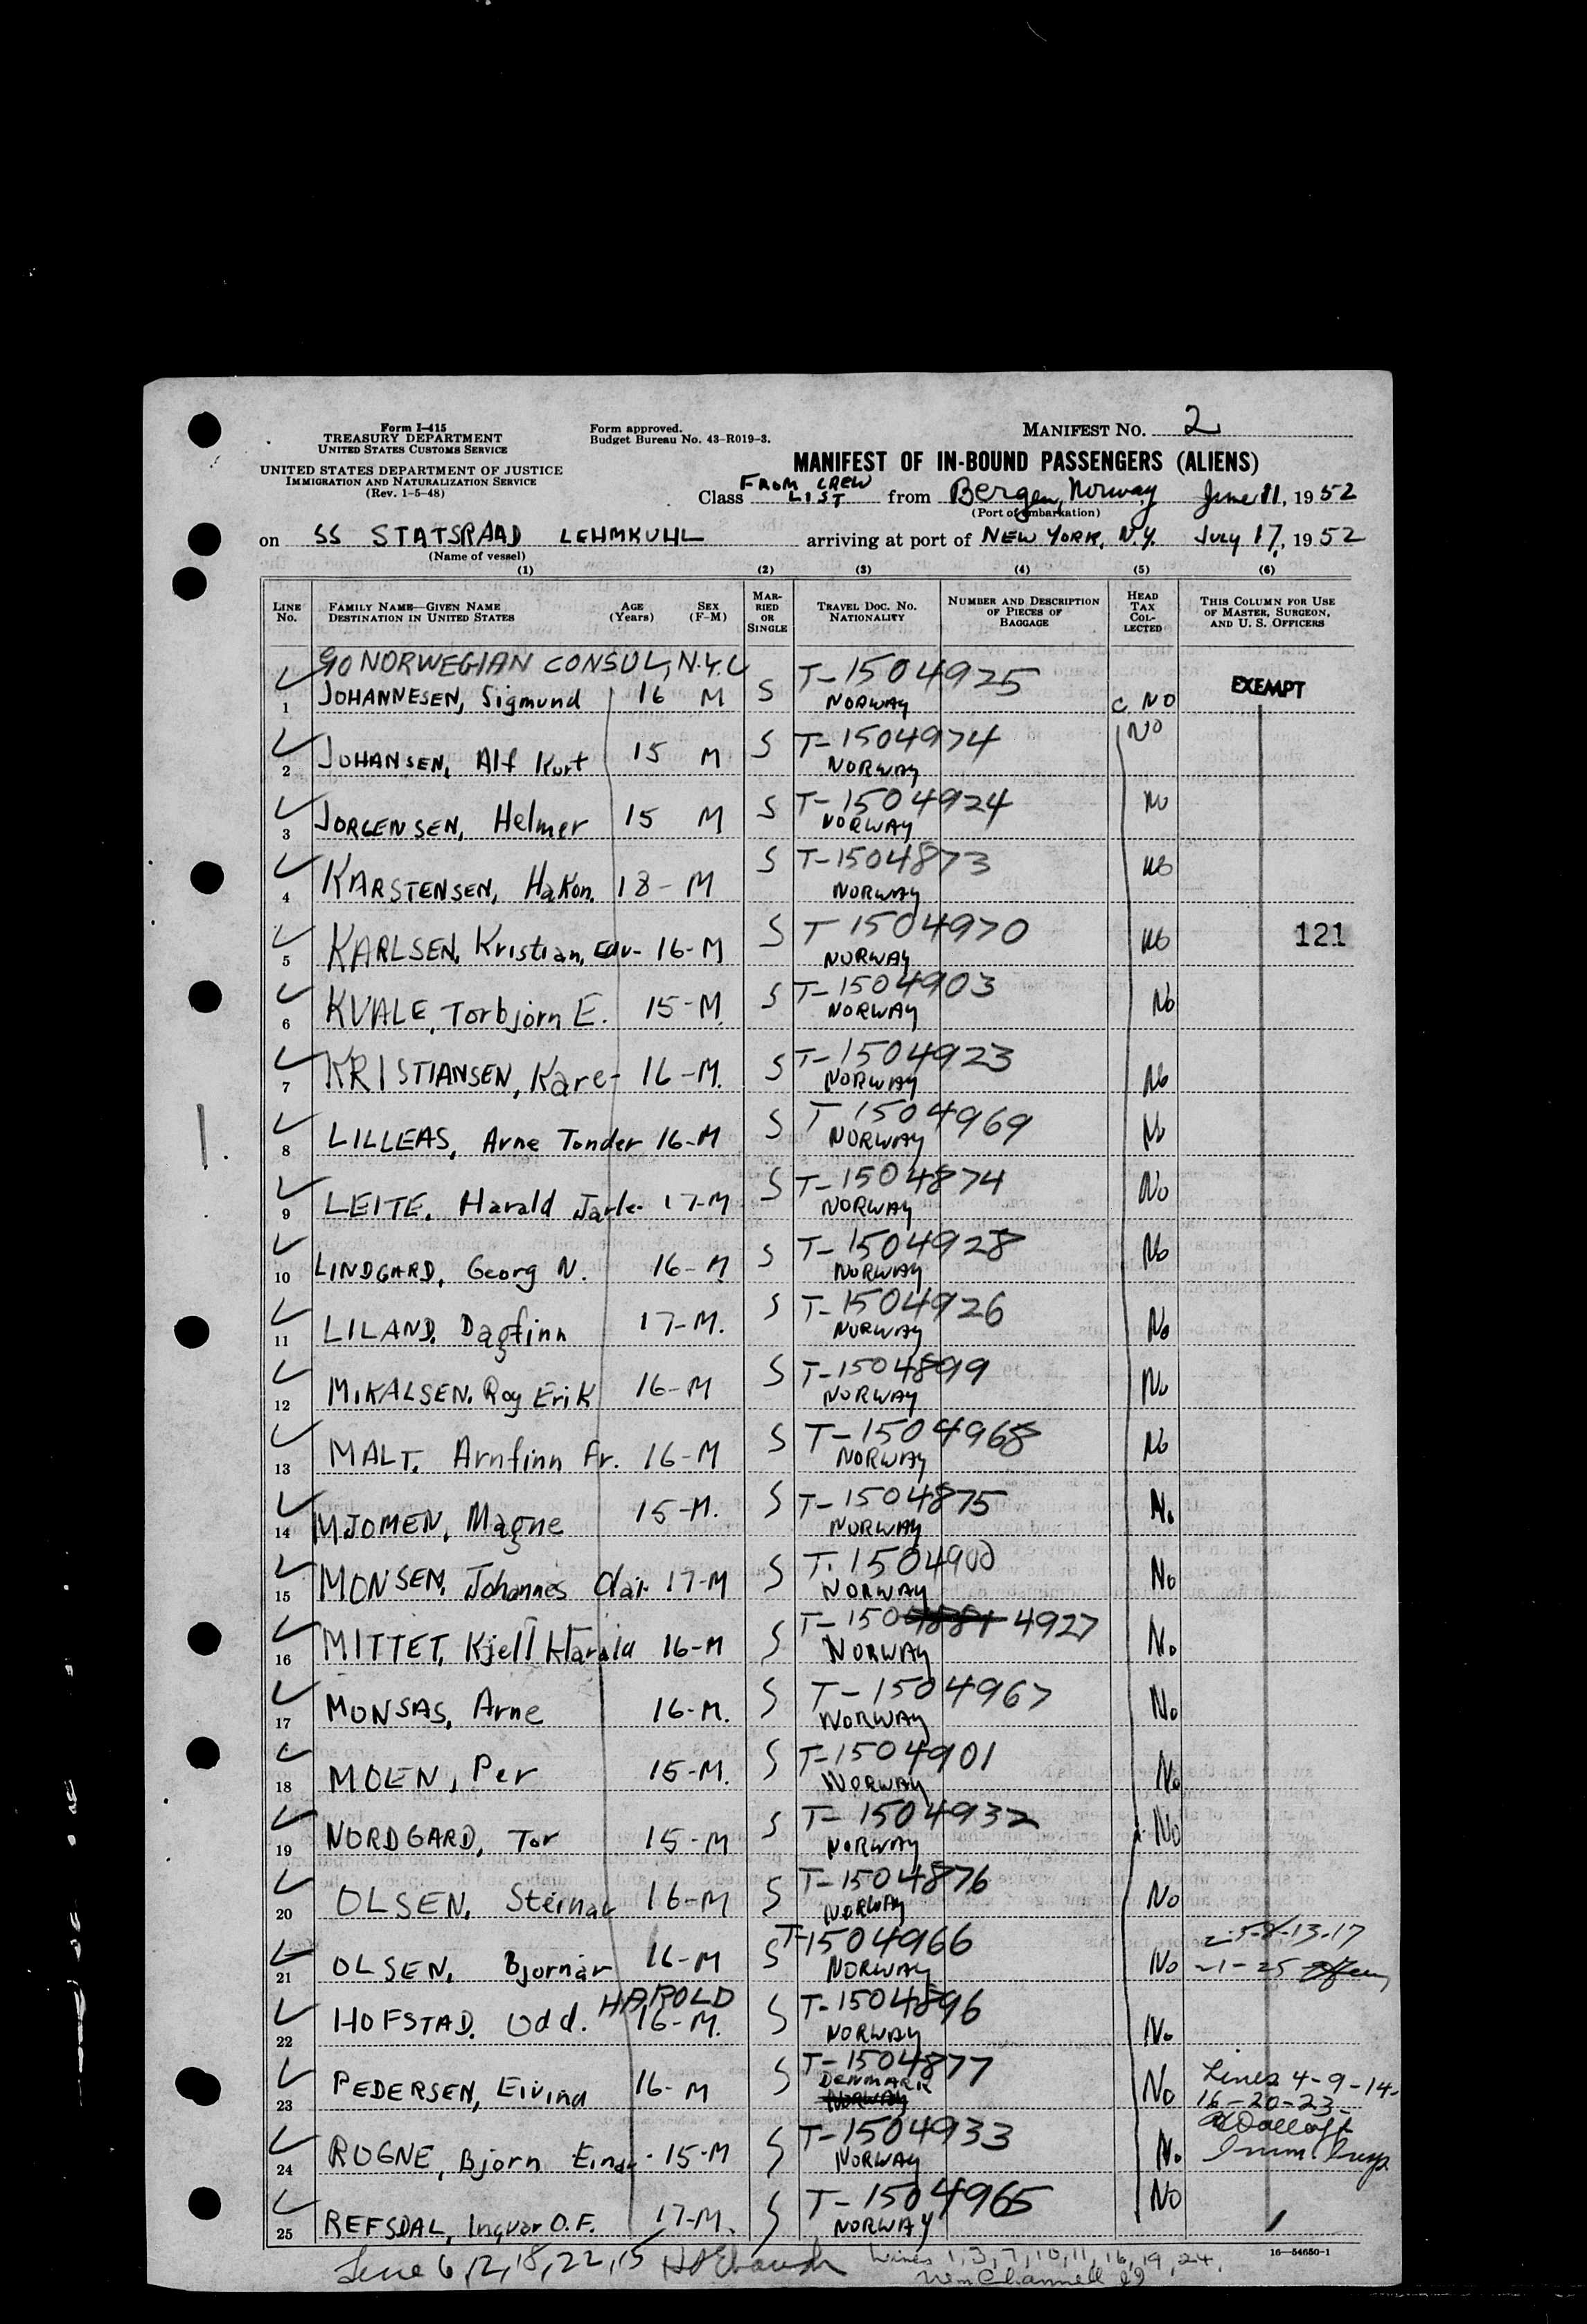 Form I-415
TREASURY DEPARTMENT
UNITED STATES CUSTOMS SERVICE
UNITED STATES DEPARTMENT OF JUSTICE
IMMIGRATION AND NATURALIZATION SERVICE
(Rev. 1-5-48)
Form approved.
Budget Bureau No. 43-R019-3.
MANIFEST NO. 2
MANIFEST OF IN-BOUND PASSENGERS (ALIENS)
Class FROM CREW LIST from Bergen, Norway June 11, 1952
(Port of embarkation)
on SS STATSRAAD LEHMKUHL arriving at port of NEW YORK, N.Y. JULY 17, 1952
(Name of vessel)
(1) (2) (3) (4) (5) (6)
LINE No. FAMILY NAME—GIVEN NAME DESTINATION IN UNITED STATES AGE (Years) SEX (F-M) MARRIED OR SINGLE TRAVEL DOC. NO. NATIONALITY NUMBER AND DESCRIPTION OF PIECES OF BAGGAGE HEAD TAX COLLECTED THIS COLUMN FOR USE OF MASTER, SURGEON, AND U. S. OFFICERS
NORWEGIAN CONSUL, N.Y.C
1 JOHANNESEN, Sigmund 16 M S T-1504925 NORWAY NO EXEMPT
2 JOHANSEN, Alf Kurt 15 M S T-1504974 NORWAY NO
3 JORGENSEN, Helmer 15 M S T-1504924 NORWAY NO
4 KARSTENSEN, Hakon. 18-M S T-1504873 NORWAY NO
5 KARLSEN, Kristian, Edv- 16-M S T 1504970 NORWAY NO 121
6 KVALE, Torbjorn E. 15-M. S T-1504903 NORWAY No
7 KRISTIANSEN, Kare- 16-M. S T-1504923 NORWAY No
8 LILLEAS, Arne Tonder 16-M S T 1504969 NORWAY No
9 LEITE, Harald Jarle- 17-M S T-1504874 NORWAY No
10 LINDGARD, Georg N. 16-M S T-1504928 NORWAY No
11 LILAND, Dagfinn 17-M. S T-1504926 NORWAY No
12 MIKALSEN, Roy Erik 16-M S T-1504899 NORWAY No
13 MALT, Arnfinn Fr. 16-M S T-1504968 NORWAY No
14 MJOMEN, Magne 15-M. S T-1504875 NORWAY No
15 MONSEN, Johannes Olai- 17-M S T-1504900 NORWAY No
16 MITTET, Kjell Harald 16-M S T-150 4927 NORWAY No
17 MONSAS, Arne 16-M. S T-1504967 NORWAY No
18 MOEN, Per 15-M. S T-1504901 NORWAY No
19 NORDGARD, Tor 15-M S T-1504932 NORWAY No
20 OLSEN, Steinar 16-M S T-1504876 NORWAY No
21 OLSEN, Bjornar 16-M S T-1504966 NORWAY No
22 HOFSTAD, Odd. HAROLD 16-M. S T-1504896 NORWAY No
23 PEDERSEN, Eivind 16-M S T-1504877 DENMARK NORWAY No Lines 4-9-14-
16-20-23-
24 ROGNE, Bjorn 15-M S T-1504933 NORWAY No
25 REFSDAL, Ingvar O.F. 17-M. S T-1504965 NORWAY No
16—54650-1
Line 6, 12, 18, 22, 15
Lines 1, 3, 7, 10, 11, 16, 19, 24.